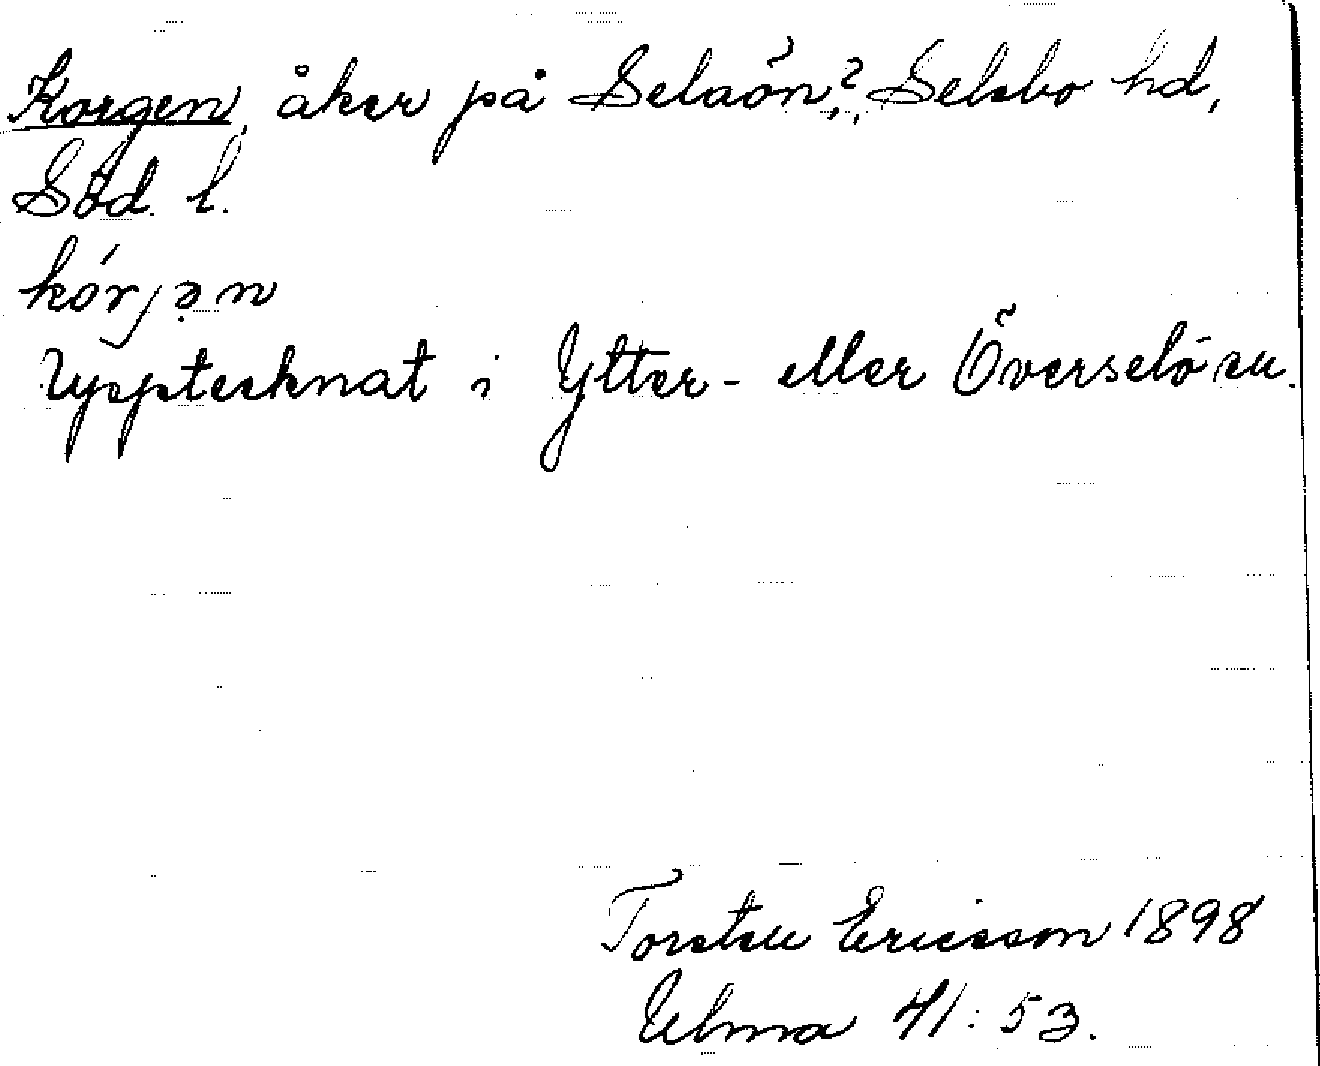 Korgen, åker på Selaön?, Selebo hd,
Söd. l.
kórjǝn
Upptecknat i Ytter- eller Överselö sn.
Torsten Ericsson 1898
Ulma 41:53.